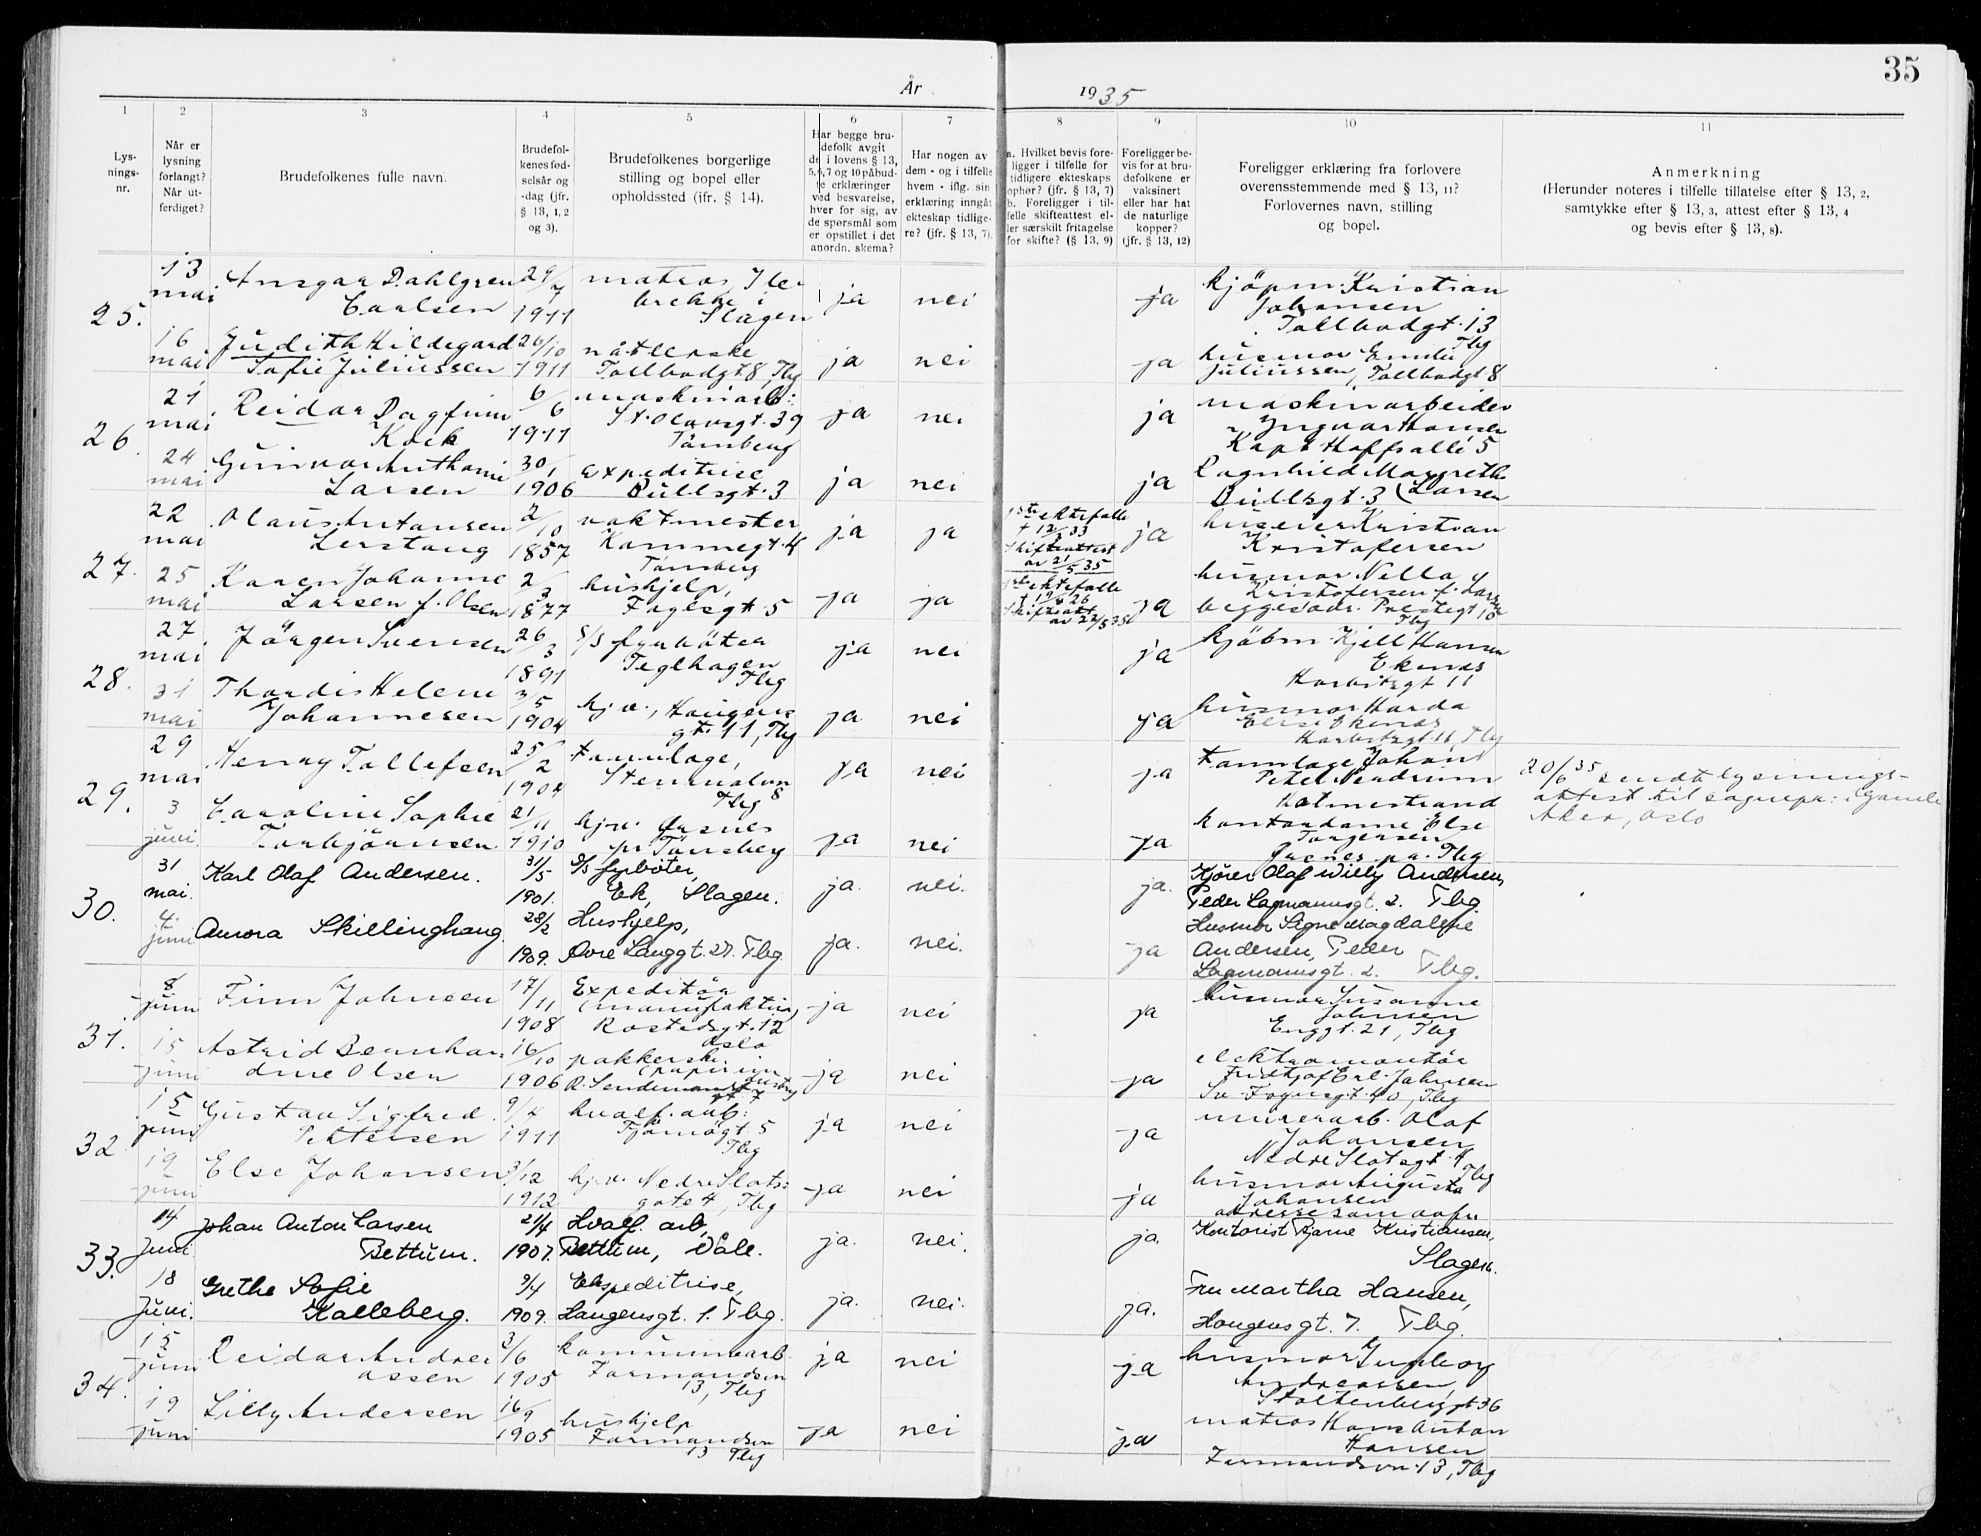 35
År
1935
1
2
3
4
5
6
7
8
9
10
11
Lys-
nings-
nr.
Når er
lysning
forlangt?
Når ut-
ferdiget?
Brudefolkenes fulle navn.
Brudefol-
kenes fød-
selsår og
-dag (jfr.
§ 13, 1, 2
og 3).
Brudefolkenes borgerlige
stilling og bopel eller
opholdssted (jfr. § 14).
Har begge bru-
defolk avgit
de i lovens § 13,
5, 6, 7 og 10 påbud-
te erklæringer
ved besvarelse,
hver for sig, av
de spørsmål som
er opstillet i det
anordn. skema?
Har nogen av
dem - og i tilfelle
hvem - iflg. sin
erklæring inngåt
ekteskap tidlige-
re? (jfr. § 13, 7).
a. Hvilket bevis fore-
ligger i tilfelle for
tidligere ekteskaps
ophør? (jfr. § 13, 7)
b. Foreligger i til-
felle skifteattest el-
ler særskilt fritagelse
for skifte? (§ 13, 9)
Foreligger be-
vis for at bru-
defolkene er
vaksinert
eller har hat
de naturlige
kopper?
(jfr. § 13, 12)
Foreligger erklæring fra forlovere
overensstemmende med § 13, 11?
Forlovernes navn, stilling
og bopel.
Anmerkning
(Herunder noteres i tilfelle tillatelse efter § 13, 2,
samtykke efter § 13, 3, attest efter § 13, 4
og bevis efter § 13, 8).
25.
13
mai
Ansgar Dahlgren
Carlsen
29/7
1911
matros, Ile-
brekke i
Slagen
ja
nei
ja
kjöpm. Kristian
Johansen
Tollbodgt. 13
Tbg
16
mai
Judith Hildegard
Sofie Juliussen
26/10
1911
Tollbodgt 8, Tbg
ja
nei
ja
husmor Emilie
Juliussen, Tollbodgt 8
26.
21
mai
Reidar Dagfinn
Kock
6/6
1911
maskinarb:
St. Olavsgt. 39
Tönsberg
ja
nei
ja
maskinarbeider
Yngvar Hansen
Kapt Hoffsallé 5
24
mai
Gunvor Anthonie
Larsen
30/1
1906
Expeditrise
Bullsgt. 3
ja
nei
ja
Ragnhild Margrethe
Bullsgt. 3 (Larsen
27.
22
mai
Olaus Antonsen
Lerstang
2/10
1857
vaktmester
Tönsberg
ja
ja
1ste ektefelle
† 12/3 33
Skifteattest
av 21/5 35
ja
huseier Kristian
Kristofersen
25
mai
Karen Johanne
Larsen f. Olsen
2/3
1877
hushjelp,
Fayesgt. 5
ja
ja
1ste ektefelle
ja
husmor Nella
Kristofersen f. Larsen
begges adr. Prestegt 10
Tbg
28.
27
mai
Jörgen Svensen
26/3
1891
s/s fyrböter
Teglhagen
Tbg
ja
nei
ja
kjöbm. Kjell Hansen
Ekenes
31
mai
Thordis Helene
Johannesen
3/5
1904
hj. v., Haugens
gt. 11, Tbg
ja
nei
ja
husmor
29.
29
mai
Henry Tollefsen
25/2
1904
tannlæge,
8
Tbg
ja
nei
ja
tannlæge Johan
Peter Nendrum
Holmestrand
20/6 35 sendt lysnings-
attest til sognepr: i Gamle
Aker, Oslo
3
juni
Caroline Sophie
Torbjörnsen
21/11
1910
hj.v.
pr Tönsberg
ja
nei
ja
kontordame Else
Torgersen
30.
31
mai.
Karl Olaf Andersen.
31/5
1901.
S/s fyrböter,
Ek, Slagen.
ja.
nei.
ja.
Kjörer Olaf Willy Andersen,
Peder Lagmannsgt. 2. Tbg
4.
juni
Aurora Skillinghaug
28/2
1909.
Hushjelp,
Övre Langgt. 27. Tbg
ja.
nei.
ja
Husmor Signe Magdalene
Andersen, Peder
Lagmannsgt. 2. Tbg.
31.
8
juni
Finn Johnsen
17/11
1908
Expeditör
(manufaktur)
Rostedsgt. 12
Oslo
ja
nei
ja
husmor Susanne
Johnsen
Enggt. 21, Tbg
15
juni
Astrid Bernhar-
dine Olsen
16/10
1906
pakkerske
ja
nei
ja
elektromontör
Fridtjof Erl. Johnsen
Sv. Foynsgt. 40, Tbg
32
15
juni
Gustav Sigfred
Pettersen
9/4
1911
hvalf. arb:
Tjömögt. 5
Tbg
ja
nei
ja
murerarb. Olaf
Johansen
Nedre Slotsgt. 4
Tbg
19
juni
Else Johansen
3/12
1912
hj.v. Nedre Slots-
gate 4, Tbg
ja
nei
ja
husmor Augusta
Johansen
adresse som ovfr.
33.
14
Juni
Johan Anton Larsen
Bettum.
21/4
1907.
Hvalf. arb,
Bettum, Våle.
ja.
nei.
ja.
Kontorist Bjarne Kristiansen,
Slagen.
18
Juni.
Grethe Sofie
Kalleberg.
9/4
1909.
Ekspeditrise,
Haugensgt. 1. Tbg.
ja.
nei.
ja.
Fru Martha Hansen,
Haugensgt. 7. Tbg.
34.
15
juni
Reidar Andrea-
assen
3/6
1905
kommunearb.
Farmandsvn
13, Tbg
ja
nei
ja
husmor Ingeborg
Andreassen,
Stoltenberggt 36
19
juni
Lilly Andersen
16/9
1905
hushjelp
Farmandsvn
13 Tbg
ja
nei
ja
matros Hans Anton
Hansen
Farmandsvn. 13, Tbg